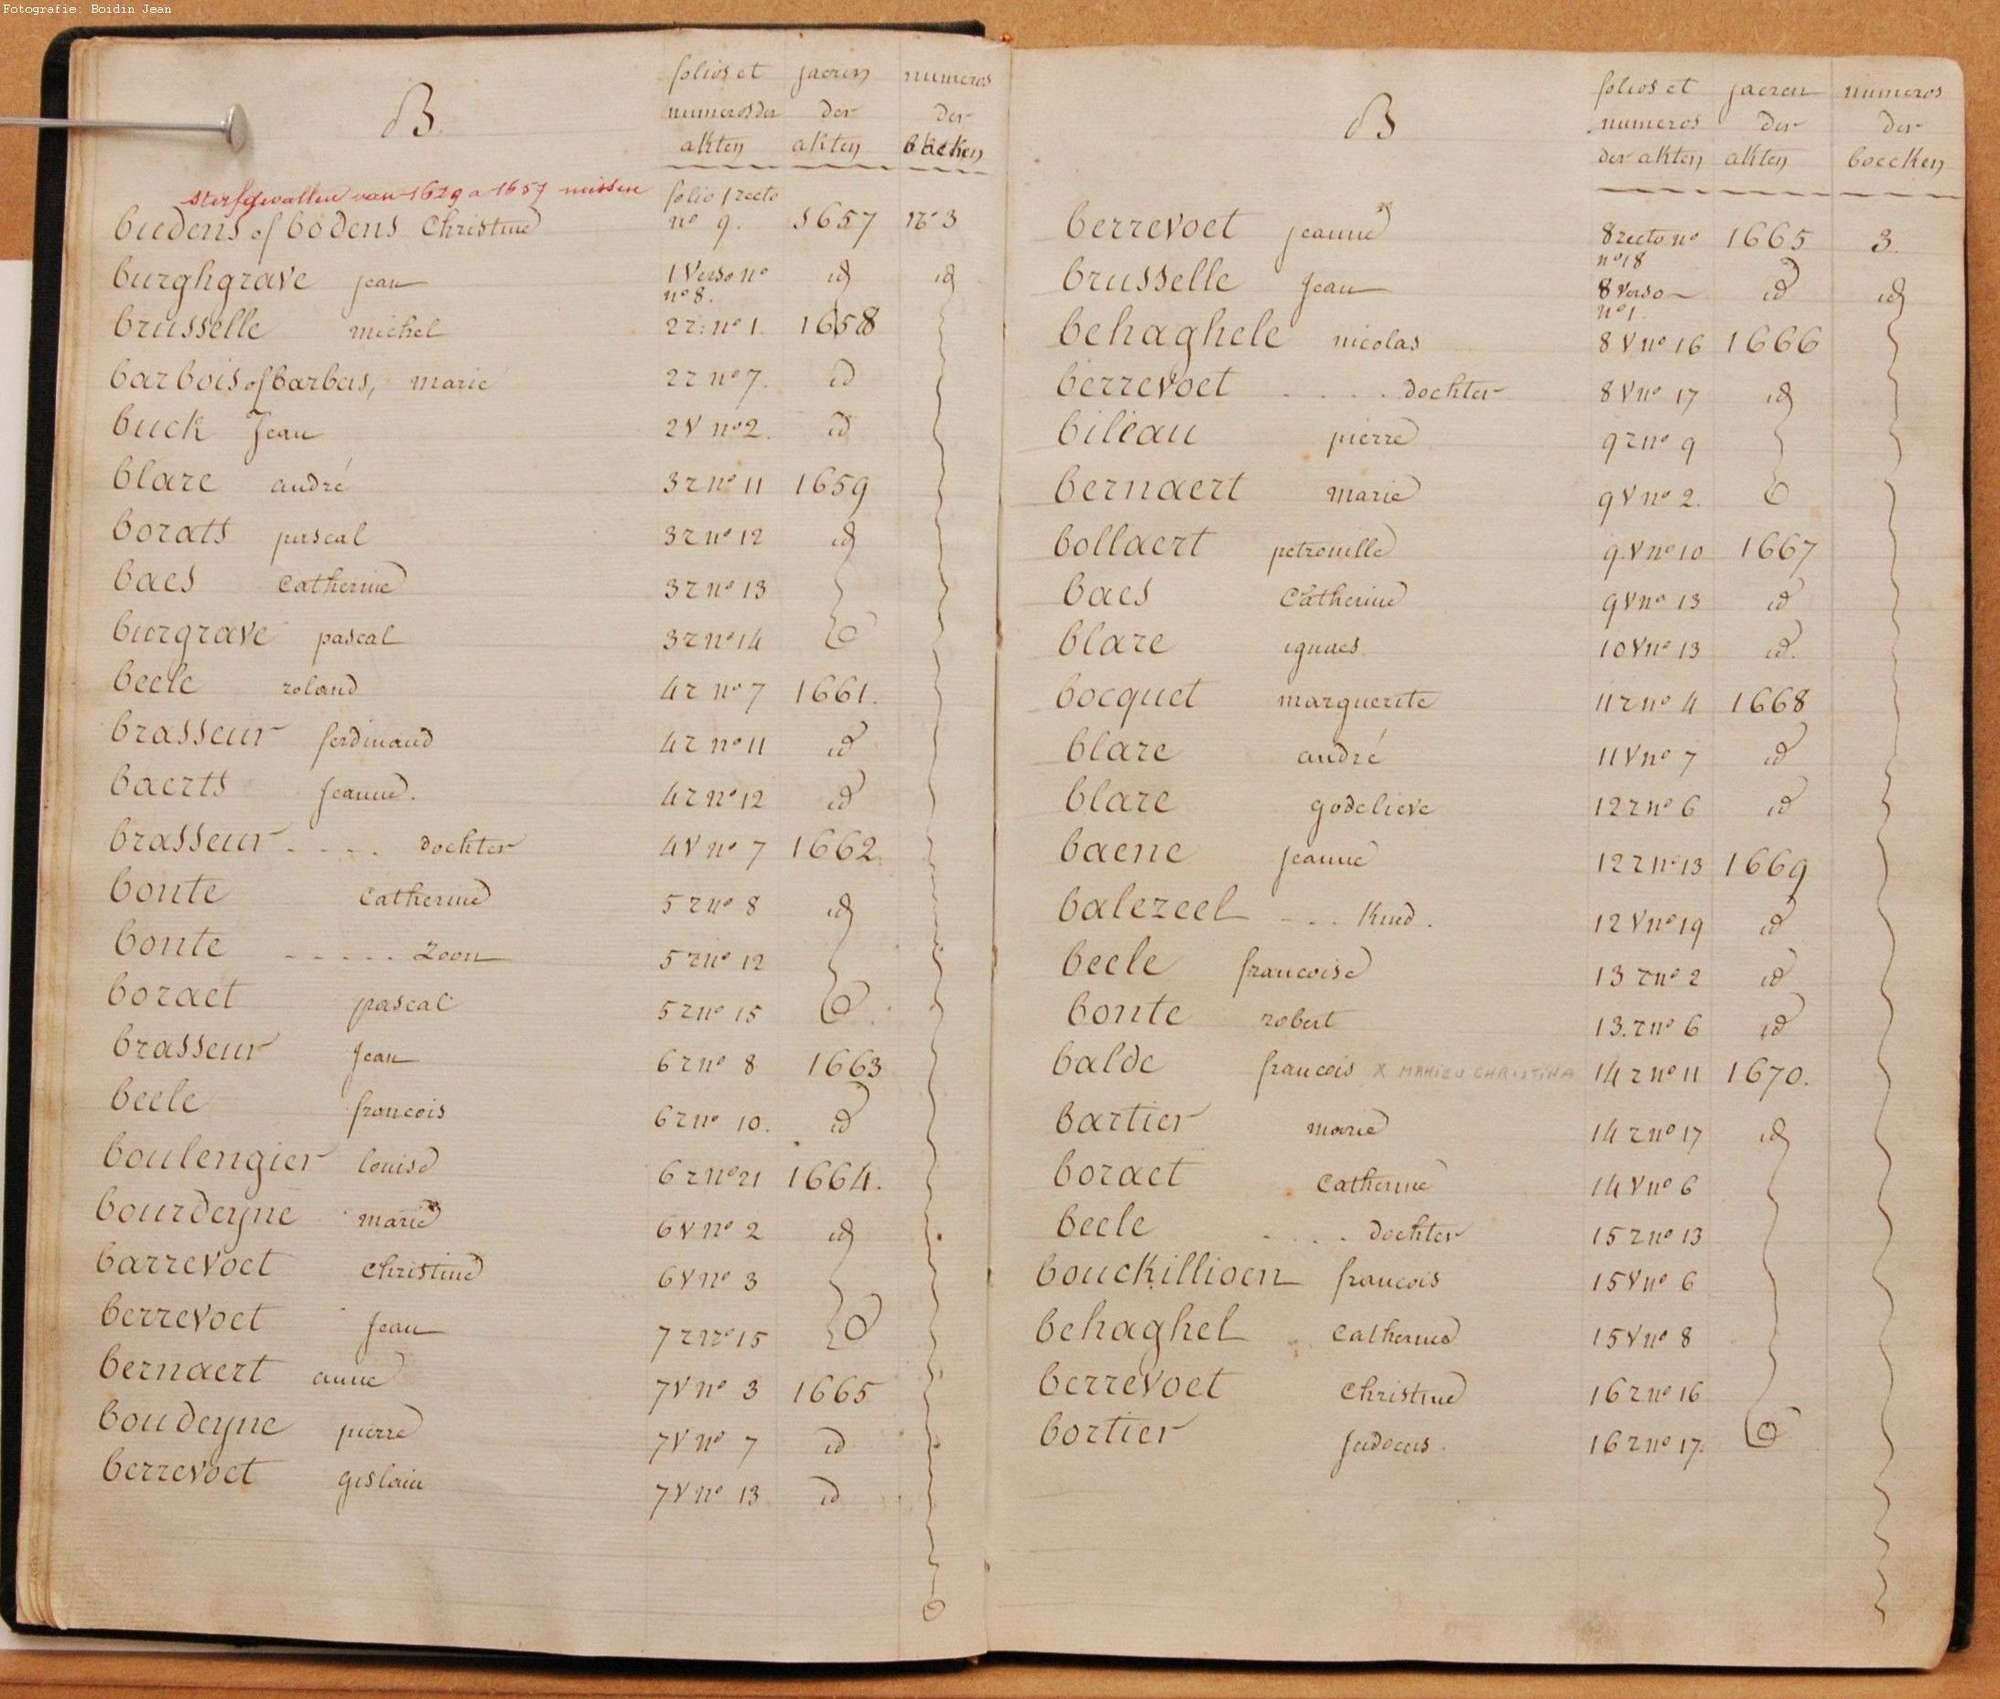 Fotografie: Boidin Jean
B.
folios et numeros der akten
jaeren der akten
numeros der boecken
sterfgevallen van 1629 a 1657 missen
budens of bodens Christine folio 1 recto no 9. 1657 no 3
burghgrave jean 1 verso no no 8. id id
brusselle michel 2 r: no 1. 1658
barbois of barbers, marie 2 r no 7. id
buck Jean 2 V no 2. id
blare andré 3 r no 11 1659
borats pascal 3 r no 12 id
baes Catherine 3 r no 13
burgrave pascal 3 r no 14
beele roland 4 r no 7 1661.
brasseur ferdinand 4 r no 11 id
baerts Jeanne. 4 r no 12 id
brasseur - - - - dochter 4 V no 7 1662.
bonte Catherine 5 r no 8 id
bonte - - - - - Zoon 5 r no 12
boraet pascal 5 r no 15
brasseur Jean 6 r no 8 1663
beele francois 6 r no 10. id
boulengier louise 6 r no 21 1664.
bourdeyne marie 6 V no 2 id
barrevoet Christine 6 V no 3
berrevoet Jean 7 r no 15
bernaert anne 7 V no 3 1665
boudeyne pierre 7 V no 7 id
berrevoet gislain 7 V no 13 id
B
folios et numeros der akten
jaeren der akten
numeros der boecken
berrevoet jeanne 8 recto no no 18 1665 3.
brusselle Jean 8 verso no 1. id id
behaghele nicolas 8 V no 16 1666
berrevoet - - - - dochter 8 V no 17 id
bileau pierre 9 r no 9
bernaert marie 9 V no 2.
bollaert petronille 9 V no 10 1667
baes Catherine 9 V no 13 id
blare ignaes 10 V no 13 id.
bocquet marguerite 11 r no 4 1668
blare andré 11 V no 7 id
blare godelieve 12 r no 6 id
baene jeanne 12 r no 13 1669
balezeel - - - Kind. 12 V no 19 id
beele francoise 13 r no 2 id
bonte robert 13. r no 6 id
balde francois X MAHIEU CHRISTINA 14 r no 11 1670.
bartier marie 14 r no 17 id
boraet Catherine 14 V no 6
beele - - - - dochter 15 r no 13
bouckillioen francois 15 V no 6
behaghel Catherine 15 V no 8
berrevoet Christine 16 r no 16
bortier Judocus. 16 r no 17.